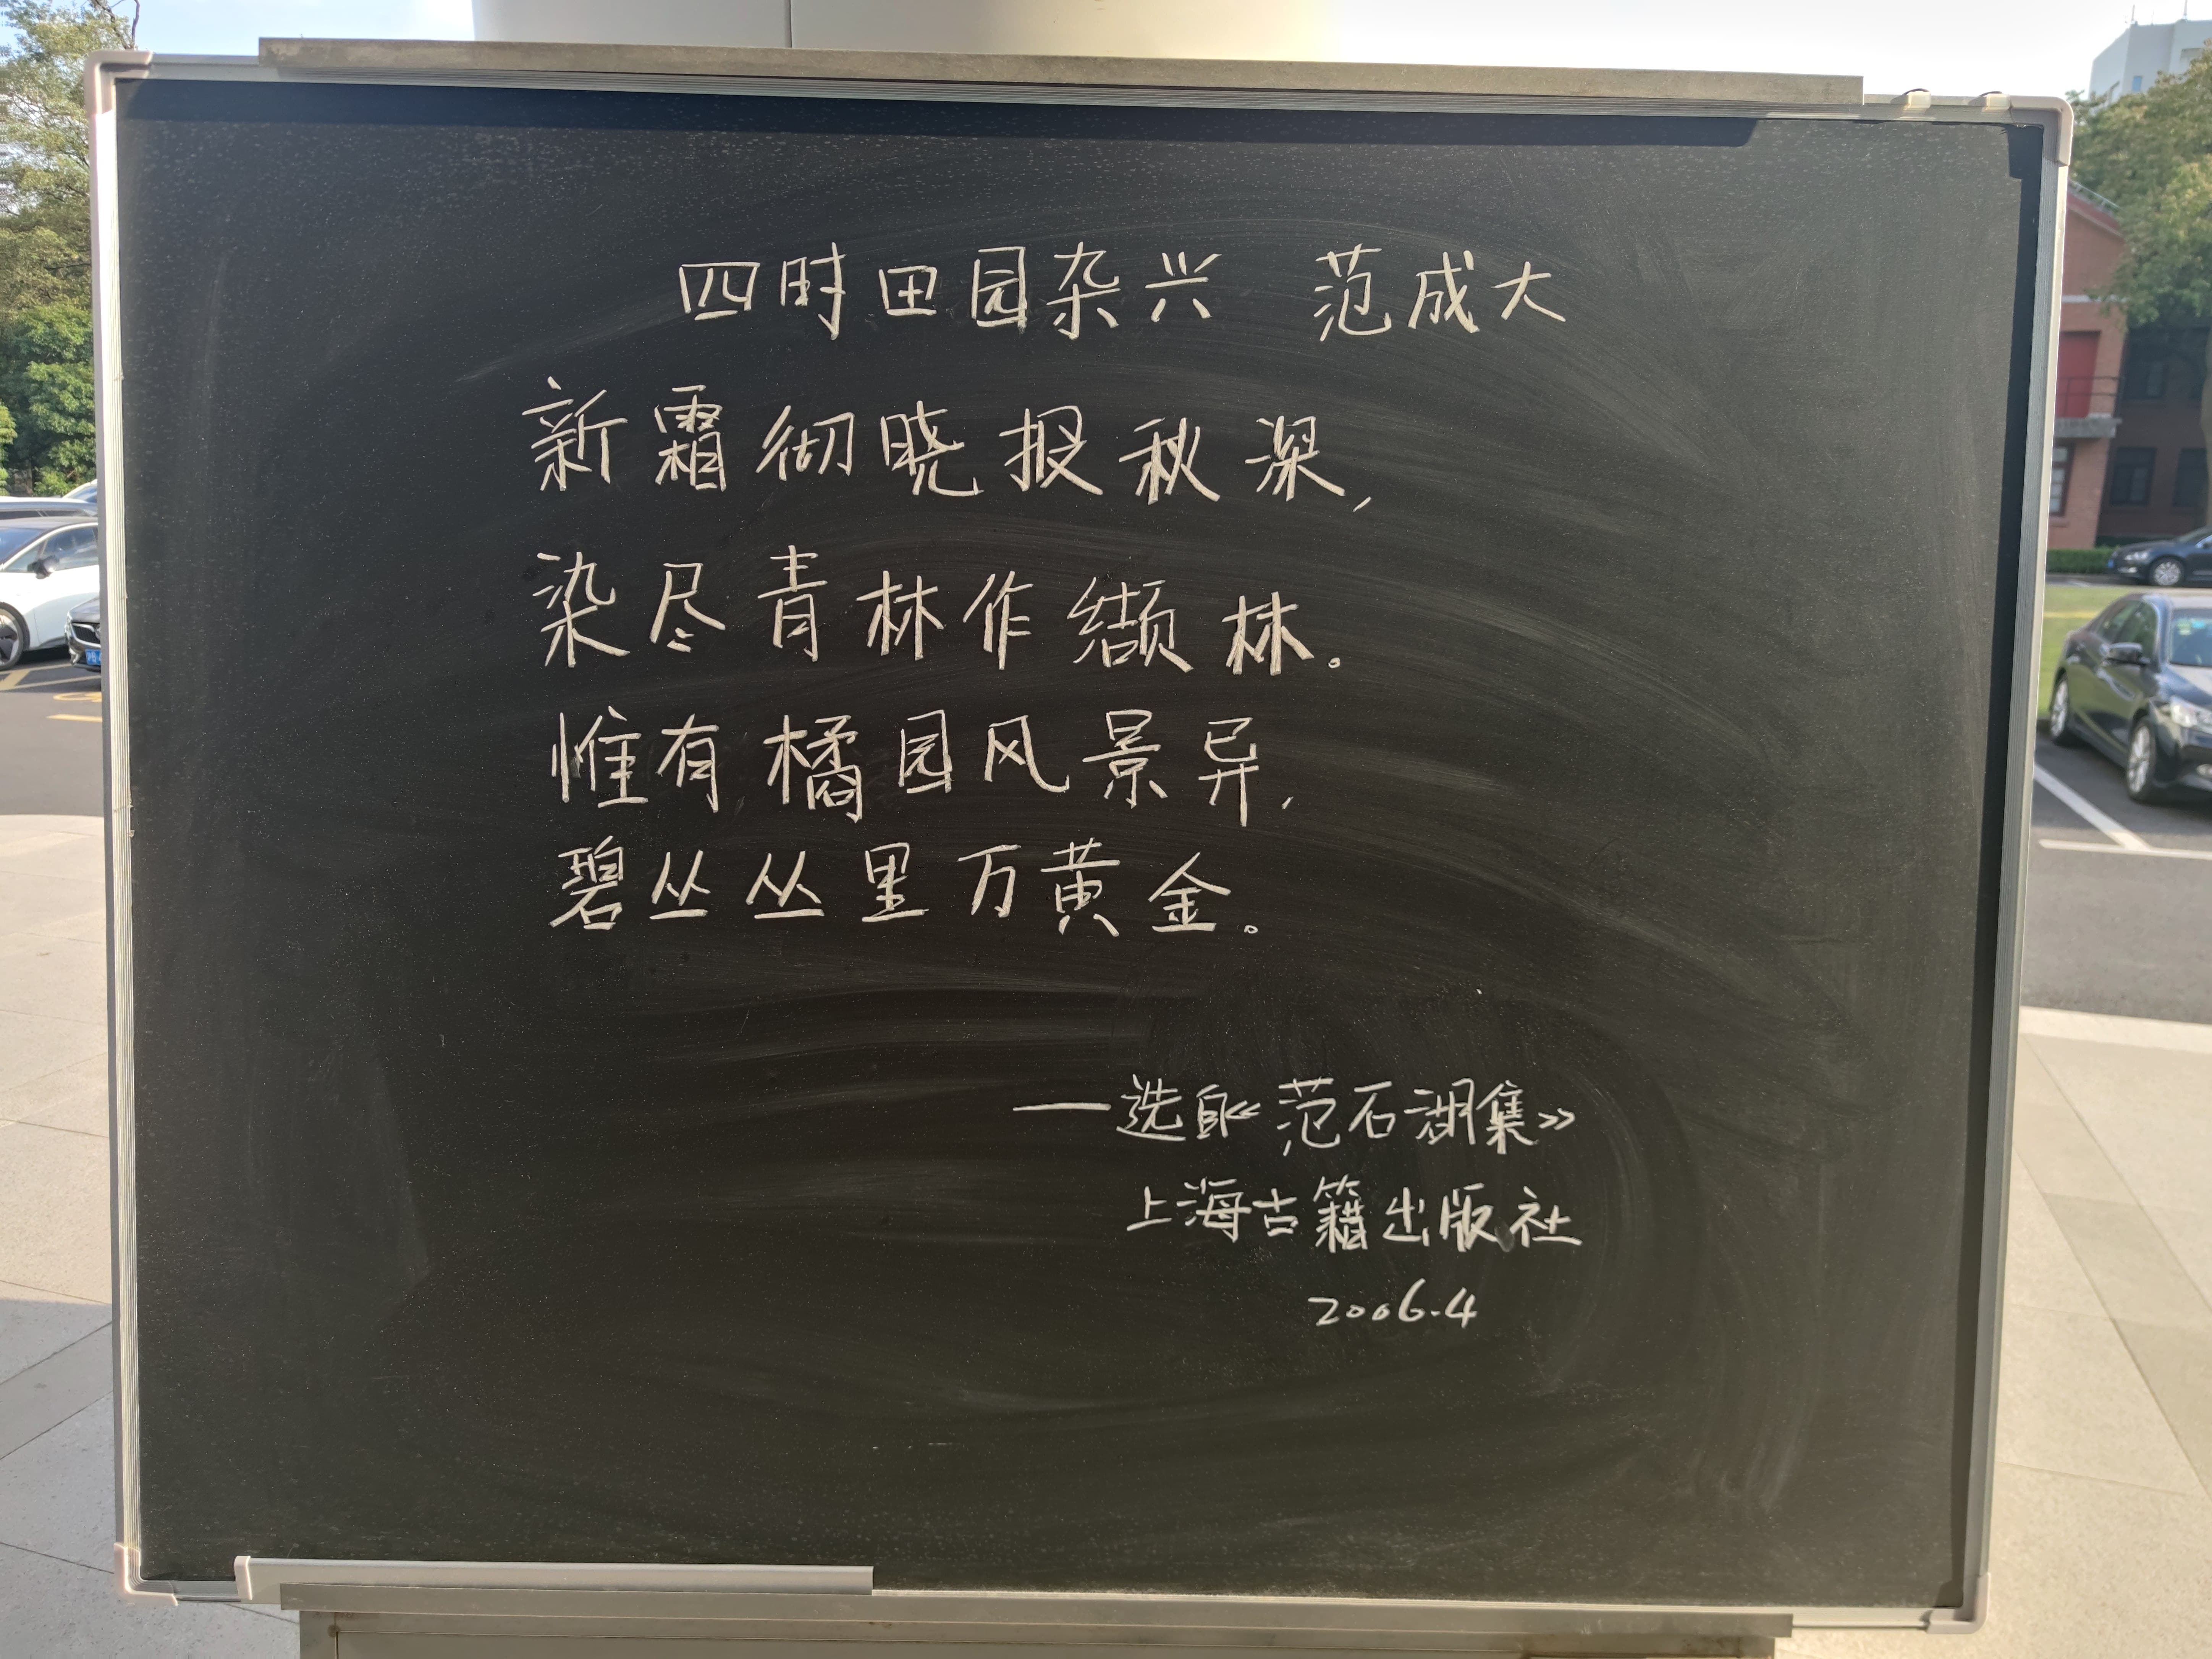 四时田园杂兴 范成大
新霜彻晓报秋深,
染尽青林作缬林。
惟有橘园风景异,
碧丛丛里万黄金。
——选自《范石湖集》
上海古籍出版社
2006.4